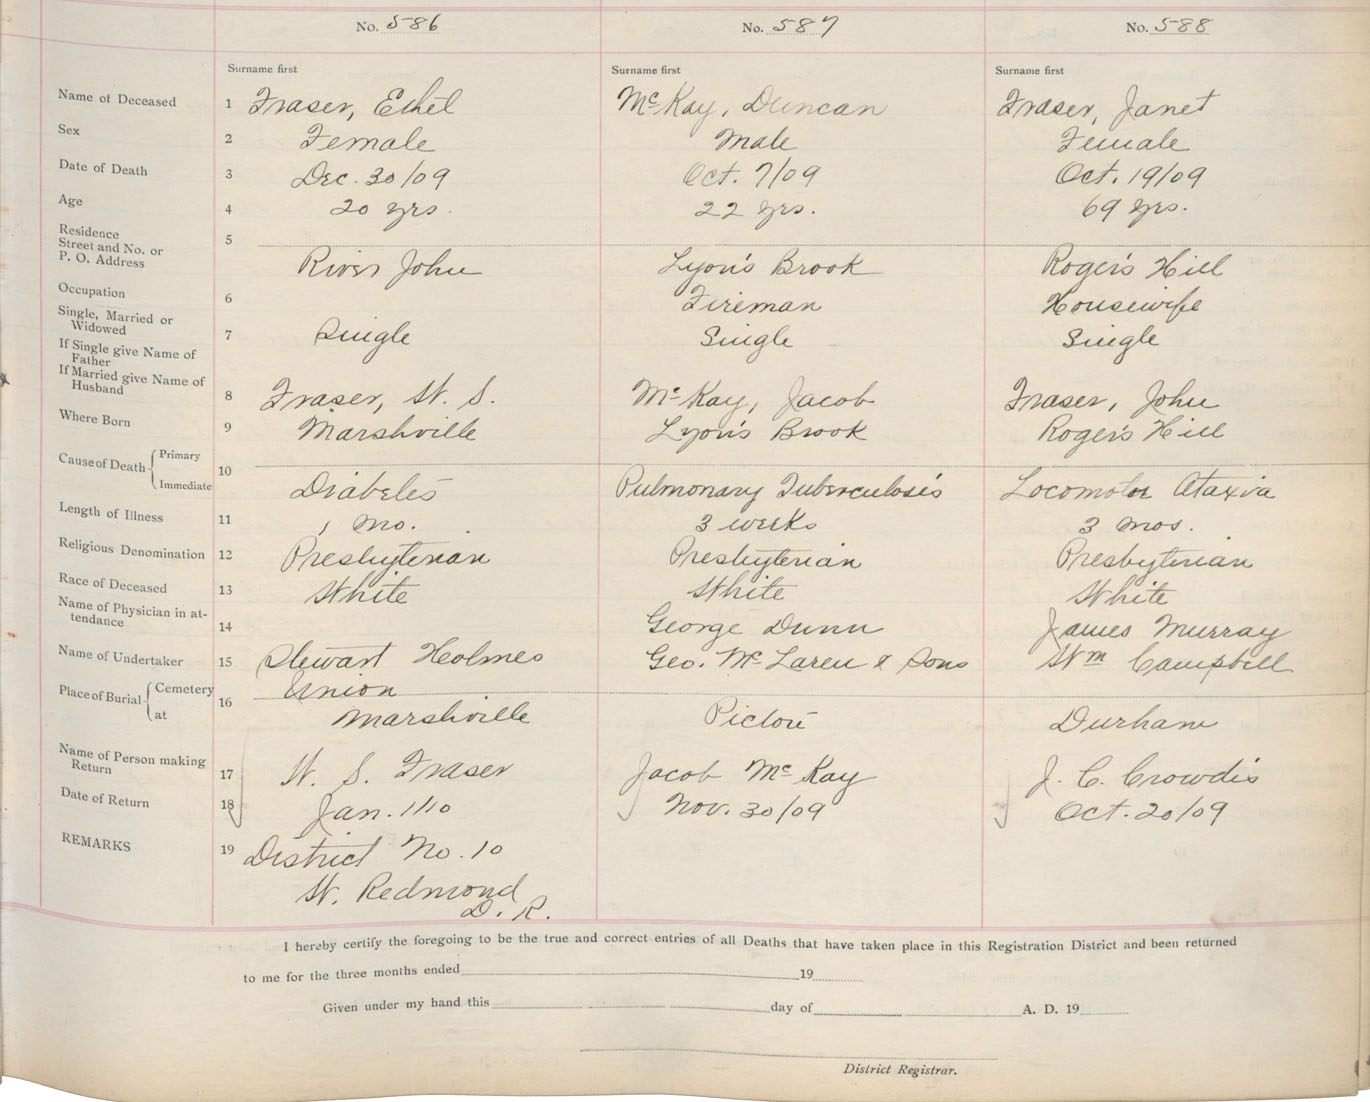 No. 586
No. 587
No. 588
Surname first
Surname first
Surname first
Name of Deceased 1 Fraser, Ethel McKay, Duncan Fraser, Janet
Sex 2 Female Male Female
Date of Death 3 Dec. 30/09 Oct. 7/09 Oct. 19/09
Age 4 20 yrs. 22 yrs. 69 yrs.
Residence
Street and No. or
P. O. Address 5 River John Lyon's Brook Roger's Hill
Occupation 6 Fireman Housewife
Single, Married or
Widowed 7 Single Single Single
If Single give Name of
Father
If Married give Name of
Husband 8 Fraser, W. S. McKay, Jacob Fraser, John
Where Born 9 Marshville Lyon's Brook Roger's Hill
Cause of Death { Primary
Immediate 10 Diabetes Pulmonary Tuberculosis Locomotor Ataxia
Length of Illness 11 1 mo. 3 weeks 3 mos.
Religious Denomination 12 Presbyterian Presbyterian Presbyterian
Race of Deceased 13 White White White
Name of Physician in at-
tendance 14 George Dunn James Murray
Name of Undertaker 15 Stewart Holmes Geo. McLaren & Sons Wm Campbell
Place of Burial { Cemetery Union
at 16 Marshville Pictou Durham
Name of Person making
Return 17 W. S. Fraser Jacob McKay J. C. Crowdis
Date of Return 18 Jan. 1/10 Nov. 30/09 Oct. 20/09
REMARKS 19 District No. 10
W. Redmond
D. R.
I hereby certify the foregoing to be the true and correct entries of all Deaths that have taken place in this Registration District and been returned
to me for the three months ended 19
Given under my hand this day of A. D. 19
District Registrar.